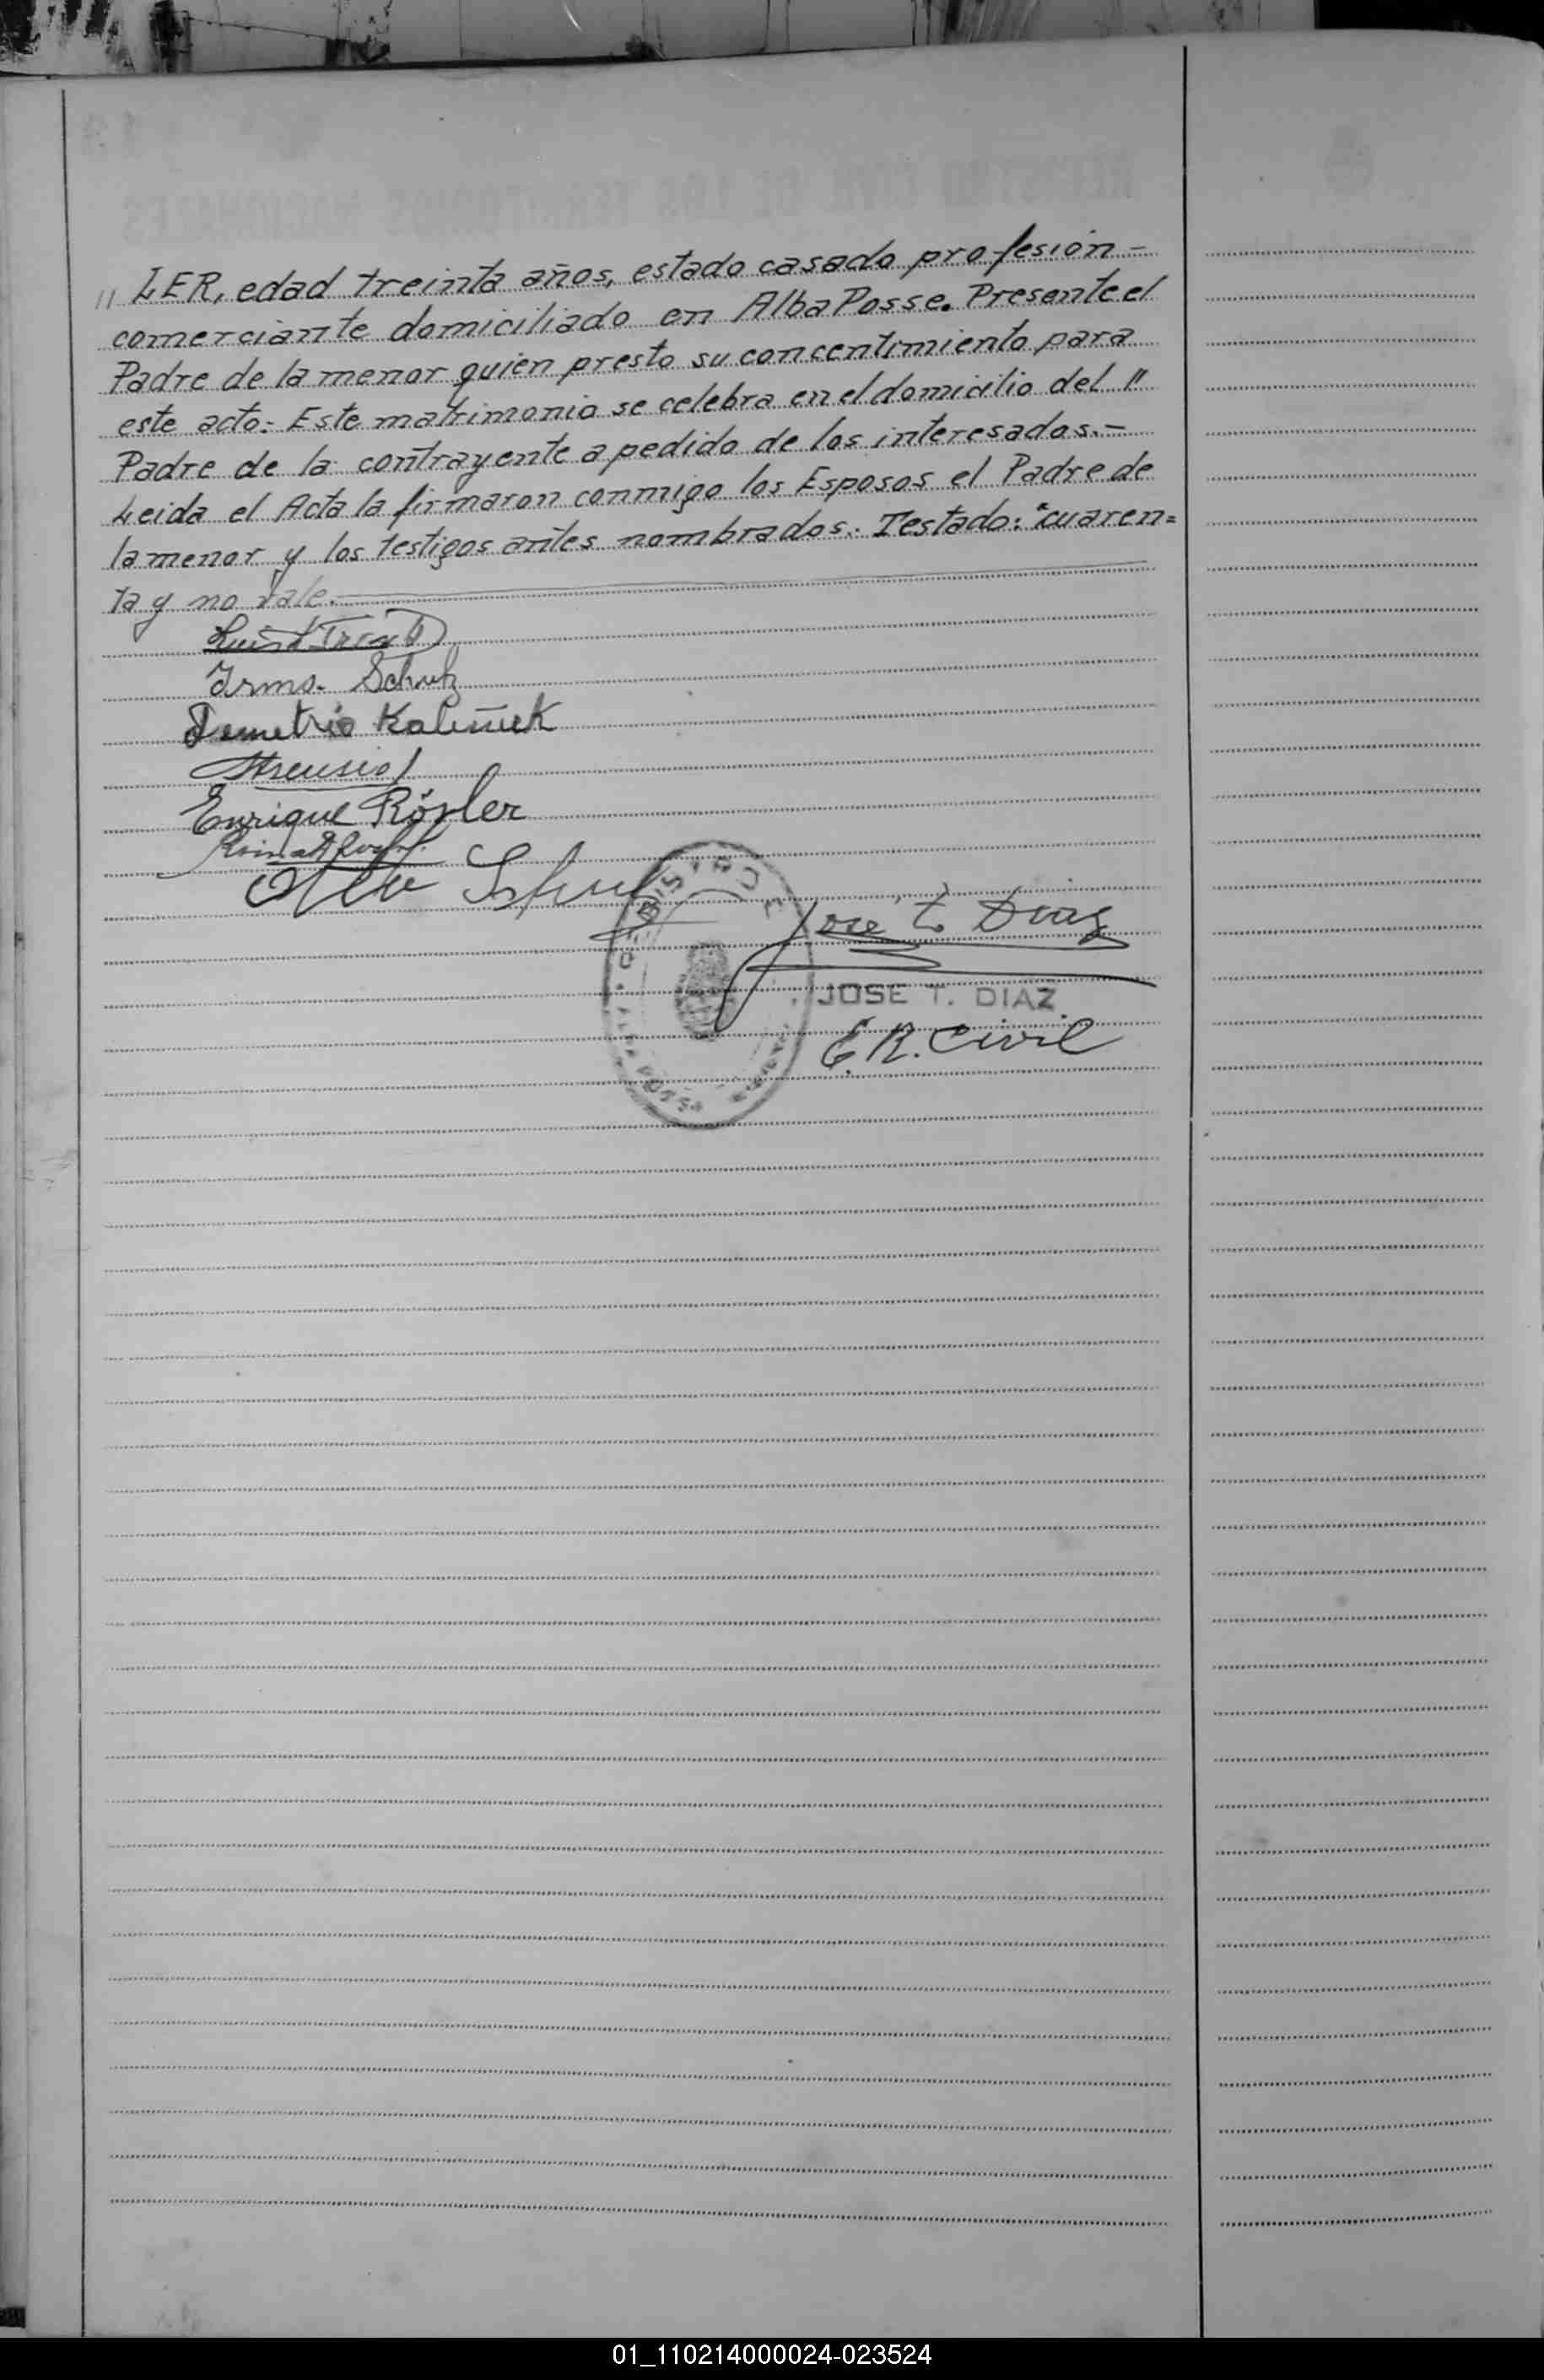 " LER, edad treinta años, estado casado profesión -
comerciante domiciliado en Alba Posse. Presente el
Padre de la menor quien presto su concentimiento para
este acto.- Este matrimonio se celebra en el domicilio del "
Padre de la contrayente a pedido de los interesados.-
Leida el Acta la firmaron conmigo los Esposos el Padre de
la menor y los testigos antes nombrados.- Testado: "cuaren=
ta y no vale.-
Irma Schutz
Demetrio Kalinuk
Enrique Rösler
Otto
José T. Diaz
JOSE T. DIAZ
E. R. Civil
01_110214000024-023524